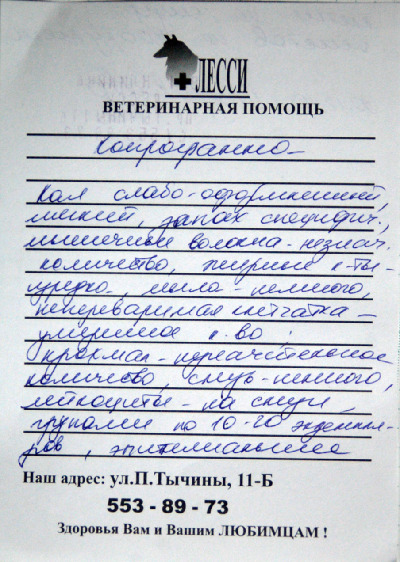 ЛЕССИ
ВЕТЕРИНАРНАЯ ПОМОЩЬ
Копрограмма
Кал слабо-оформленный,
мягкий, запах специфич.,
мышечные волокна - незнач.
количество, жирные к-ты -
редко, мыла - немного,
непереваримая клетчатка -
умеренное к-во,
крахмал - незначительное
количество, слизь - немного,
лейкоциты - на слизи
группами по 10-20 экземпля-
ров, эпителиальные
Наш адрес: ул.П.Тычины, 11-Б
553 - 89 - 73
Здоровья Вам и Вашим ЛЮБИМЦАМ !